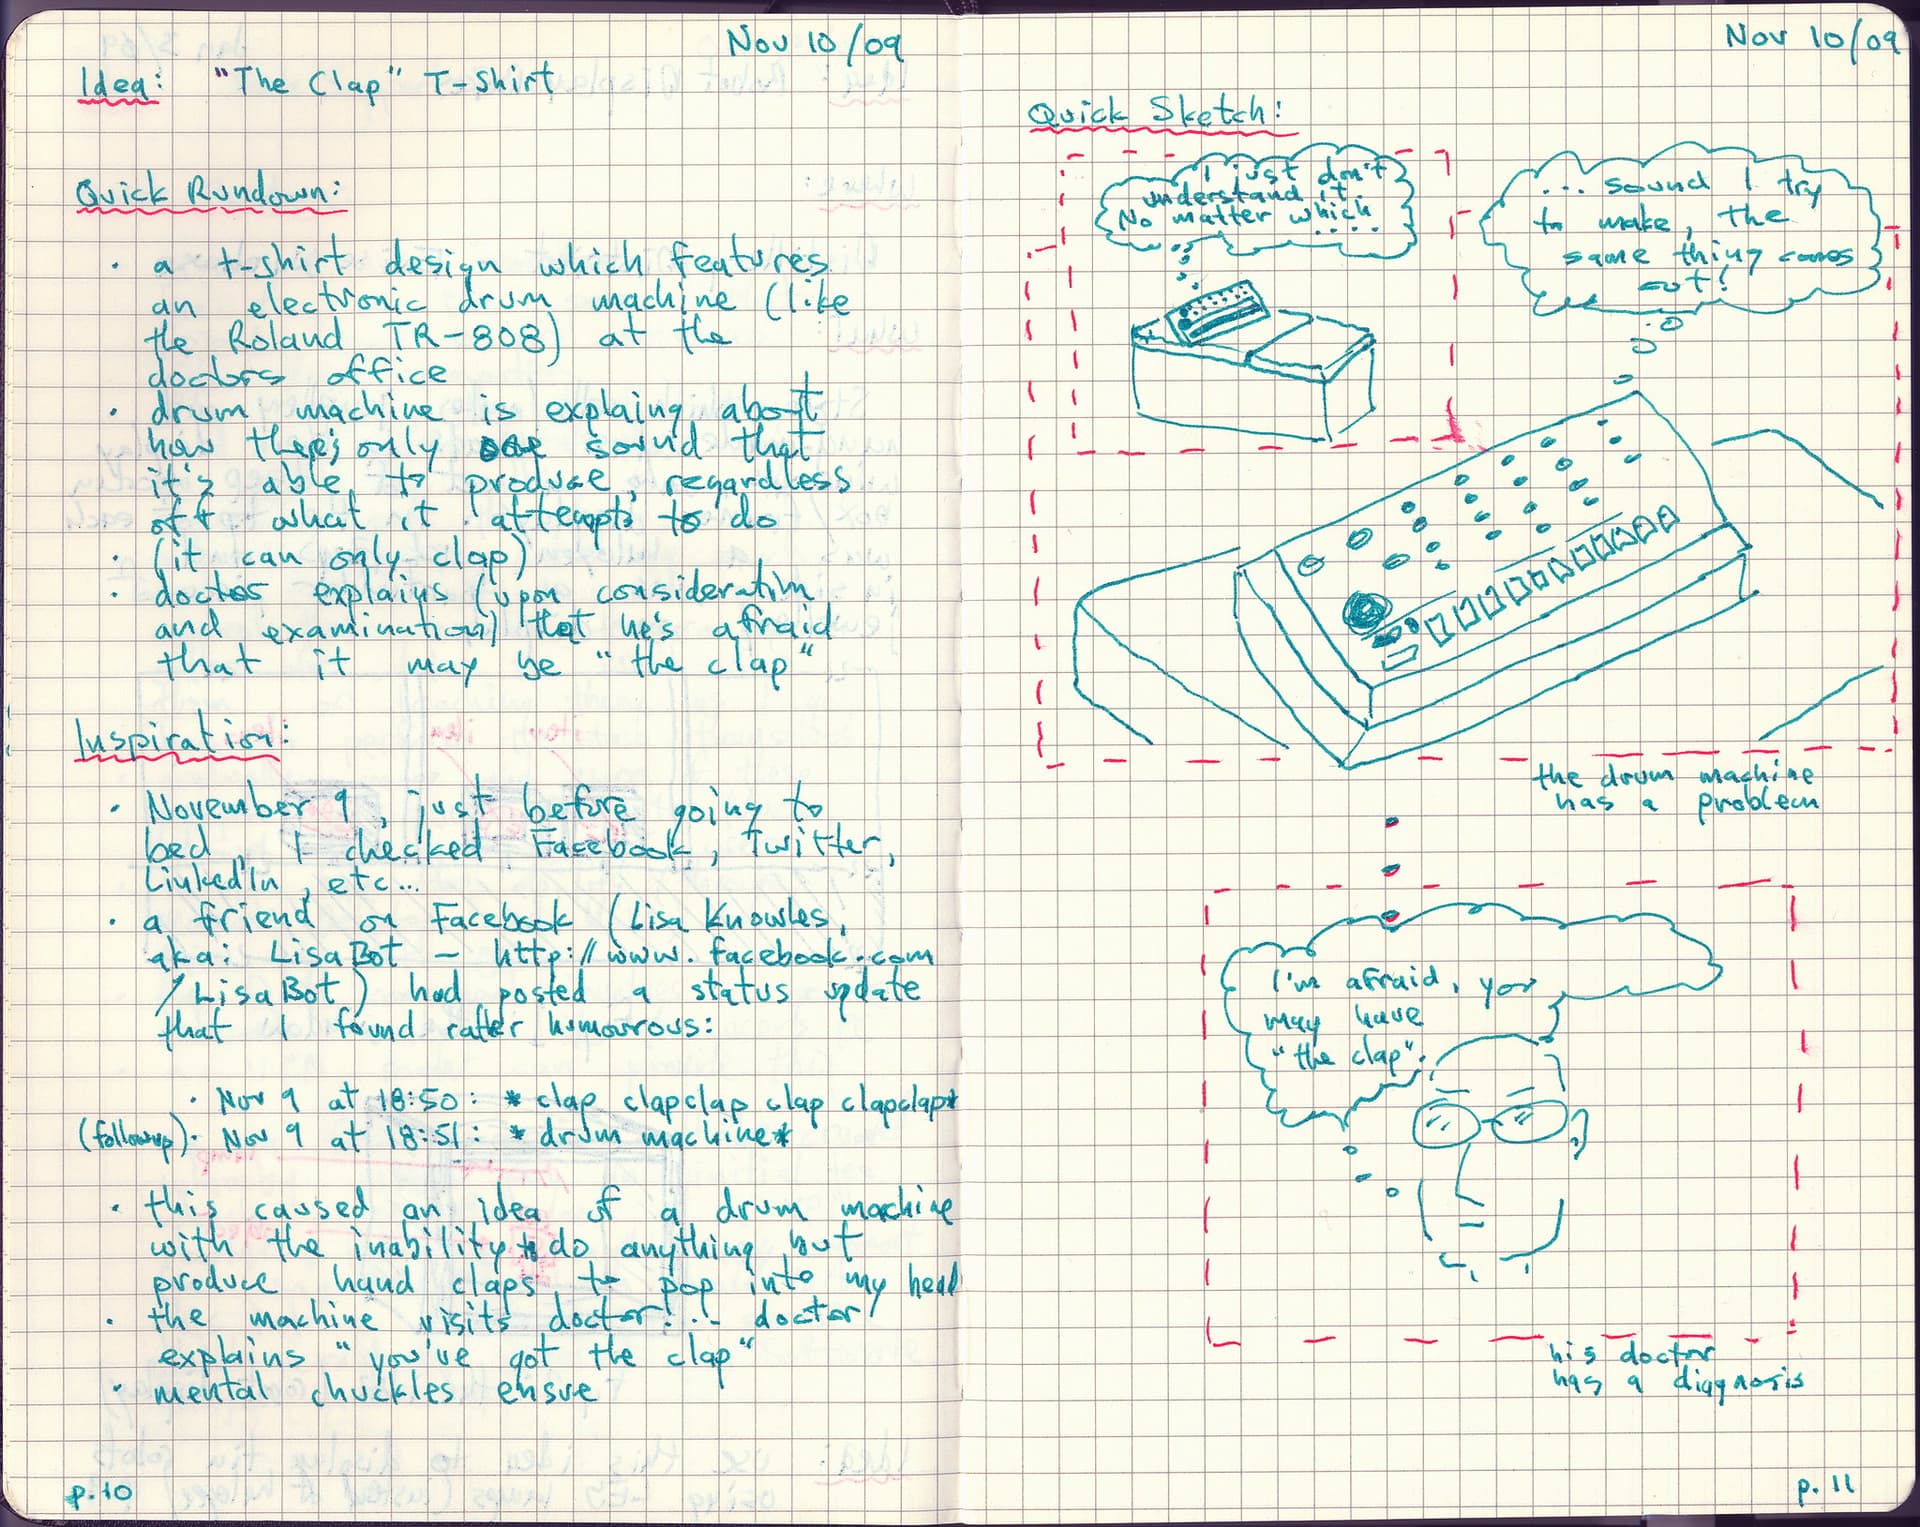 Nov 10/09
Idea: "The Clap" T-Shirt
Quick Rundown:
· a t-shirt design which features
an electronic drum machine (like
the Roland TR-808) at the
doctors office
· drum machine is explaing about
how there's only one sound that
it's able to produce, regardless
off what it attempts to do
· (it can only clap)
· doctor explains (upon consideration
and examination) that he's afraid
that it may be "the clap"
Inspiration:
· November 9, just before going to
bed, I checked Facebook, Twitter,
LinkedIn, etc...
· a friend on Facebook (Lisa Knowles,
aka: LisaBot – http://www.facebook.com
/LisaBot) had posted a status update
that I found rather humourous:
· Nov 9 at 18:50: *clap clapclap clap clapclap*
(followup) · Nov 9 at 18:51: *drum machine*
· this caused an idea of a drum machine
with the inability to do anything but
produce hand claps to pop into my head
· the machine visits doctor... doctor
explains "you've got the clap"
· mental chuckles ensue
p.10
Nov 10/09
Quick Sketch:
I just don't
understand it.
No matter which
....
... sound I try
to make, the
same thing comes
out!
the drum machine
has a problem
I'm afraid, you
may have
"the clap".
his doctor
has a diagnosis
p. 11